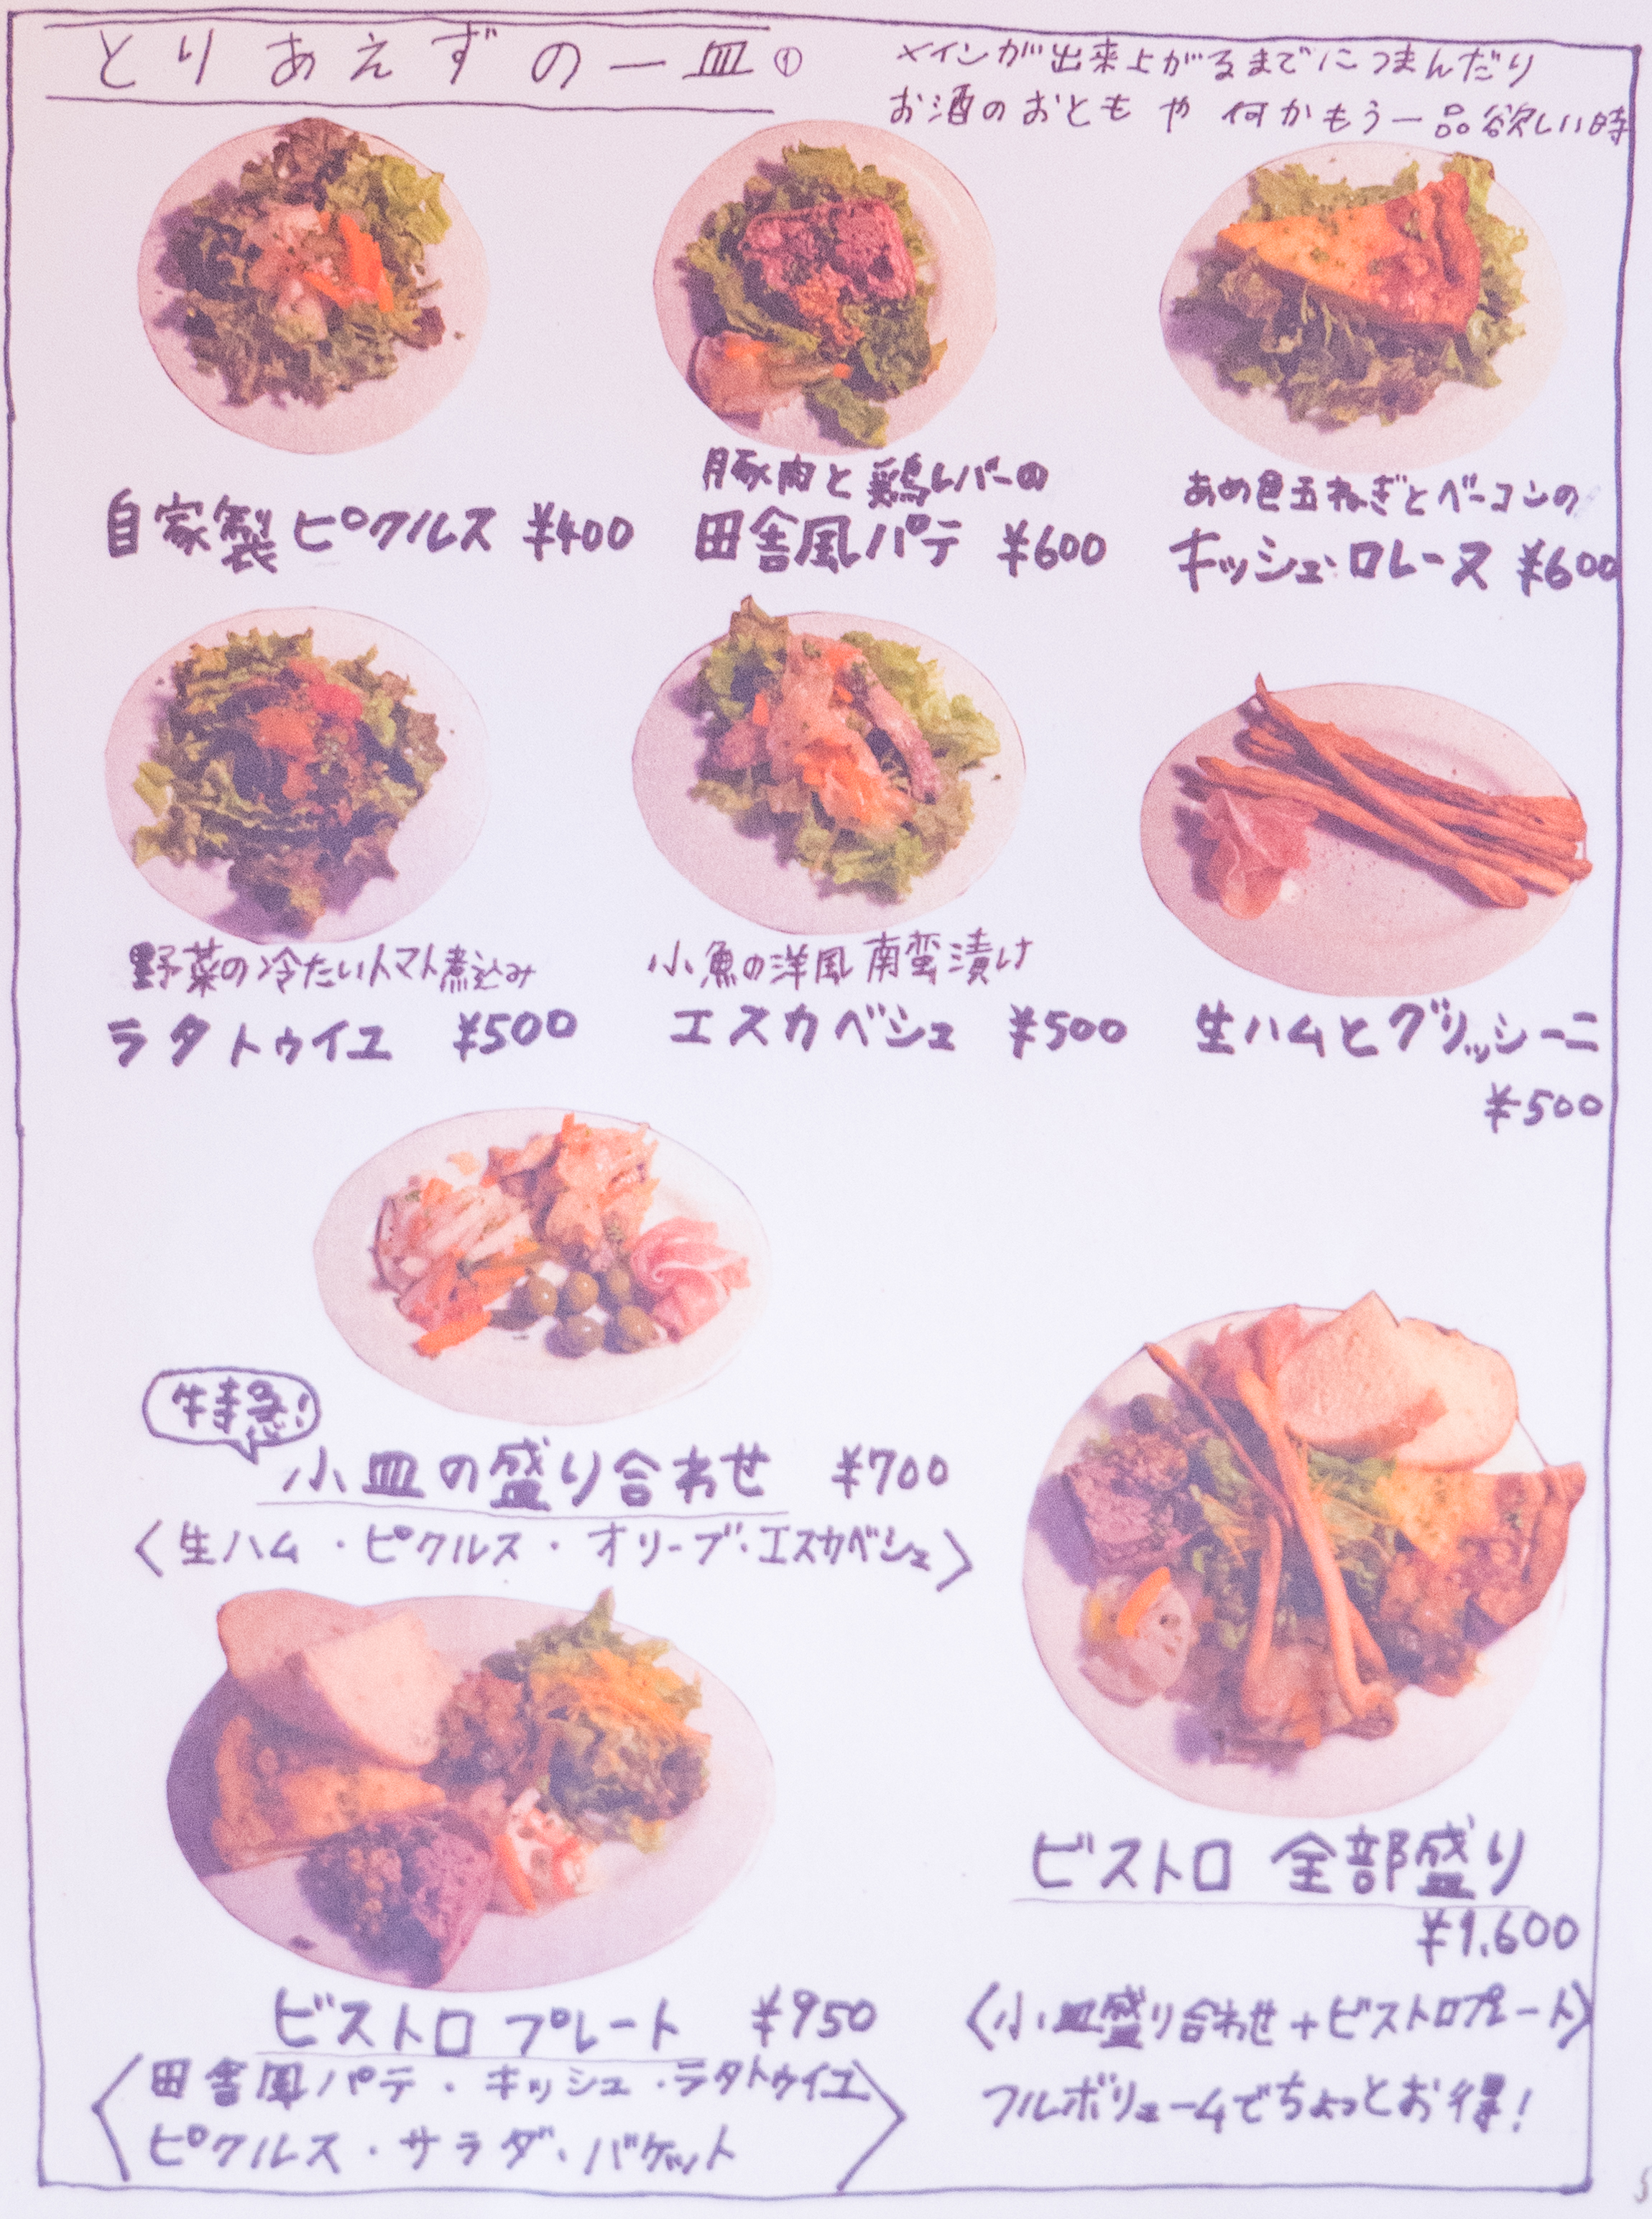 とりあえずの一皿①
メインが出来上がるまでにつまんだり
お酒のおともや何かもう一品欲しい時
自家製ピクルス ¥400
豚肉と鶏レバーの
田舎風パテ ¥600
あめ色玉ねぎとベーコンの
キッシュ・ロレーヌ ¥600
野菜の冷たいトマト煮込み
ラタトゥイユ ¥500
小魚の洋風南蛮漬け
エスカベシュ ¥500
生ハムとグリッシーニ
¥500
特急!
小皿の盛り合わせ ¥700
〈生ハム・ピクルス・オリーブ・エスカベシュ〉
ビストロプレート ¥950
〈田舎風パテ・キッシュ・ラタトゥイユ
ピクルス・サラダ・バゲット〉
ビストロ 全部盛り
¥1.600
〈小皿盛り合わせ+ビストロプレート〉
フルボリュームでちょっとお得!